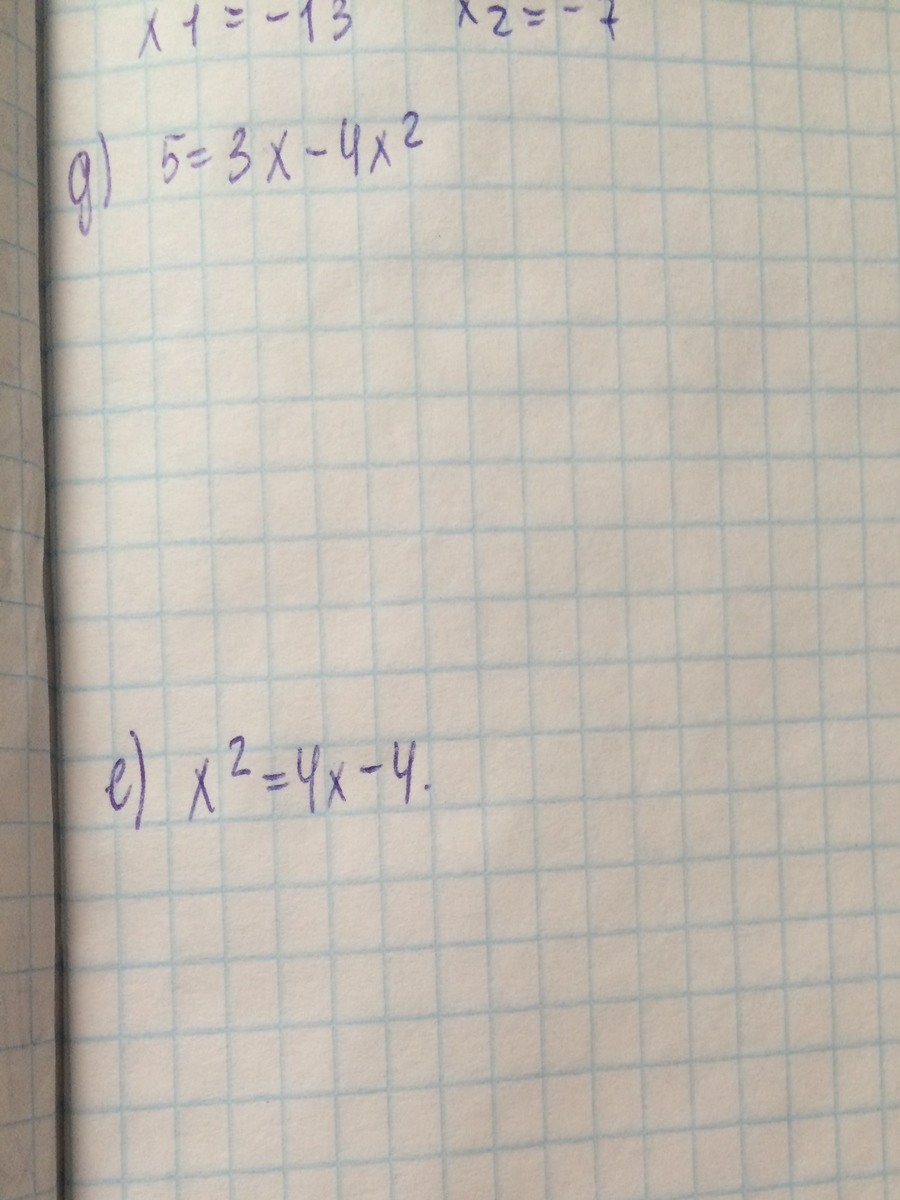 x1=-13 x2=-7
д) 5=3x-4x²
е) x²=4x-4.